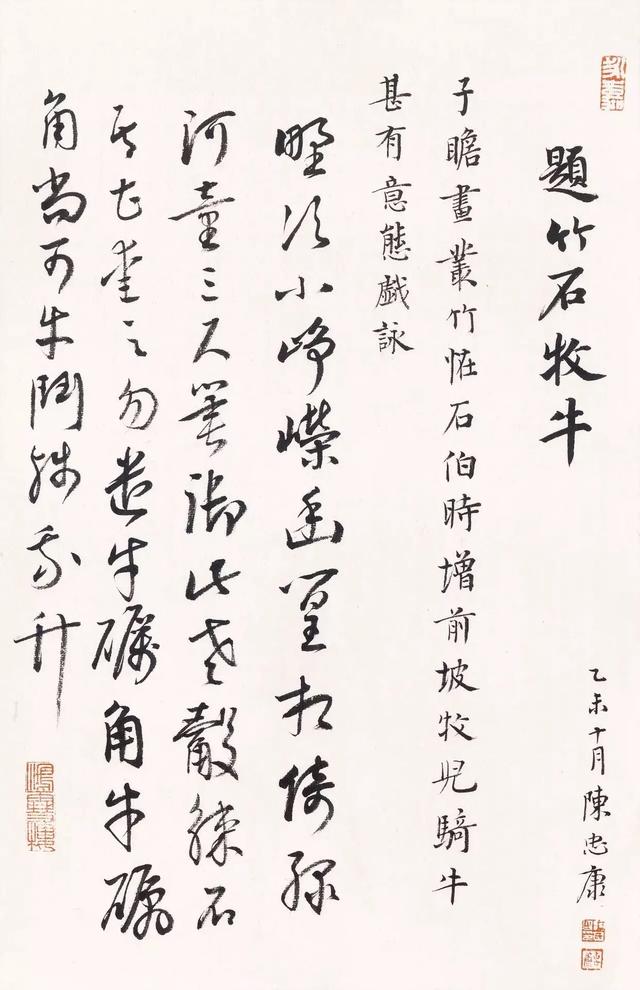 題竹石牧牛
乙未十月陳忠康
子瞻畫叢竹恠石伯時增前坡牧兒騎牛
甚有意態戯詠
野次小崢嶸幽篁相倚綠
阿童三尺箠御此老觳觫石
吾甚愛之勿遣牛礪角牛礪
角尚可牛鬪殘我竹